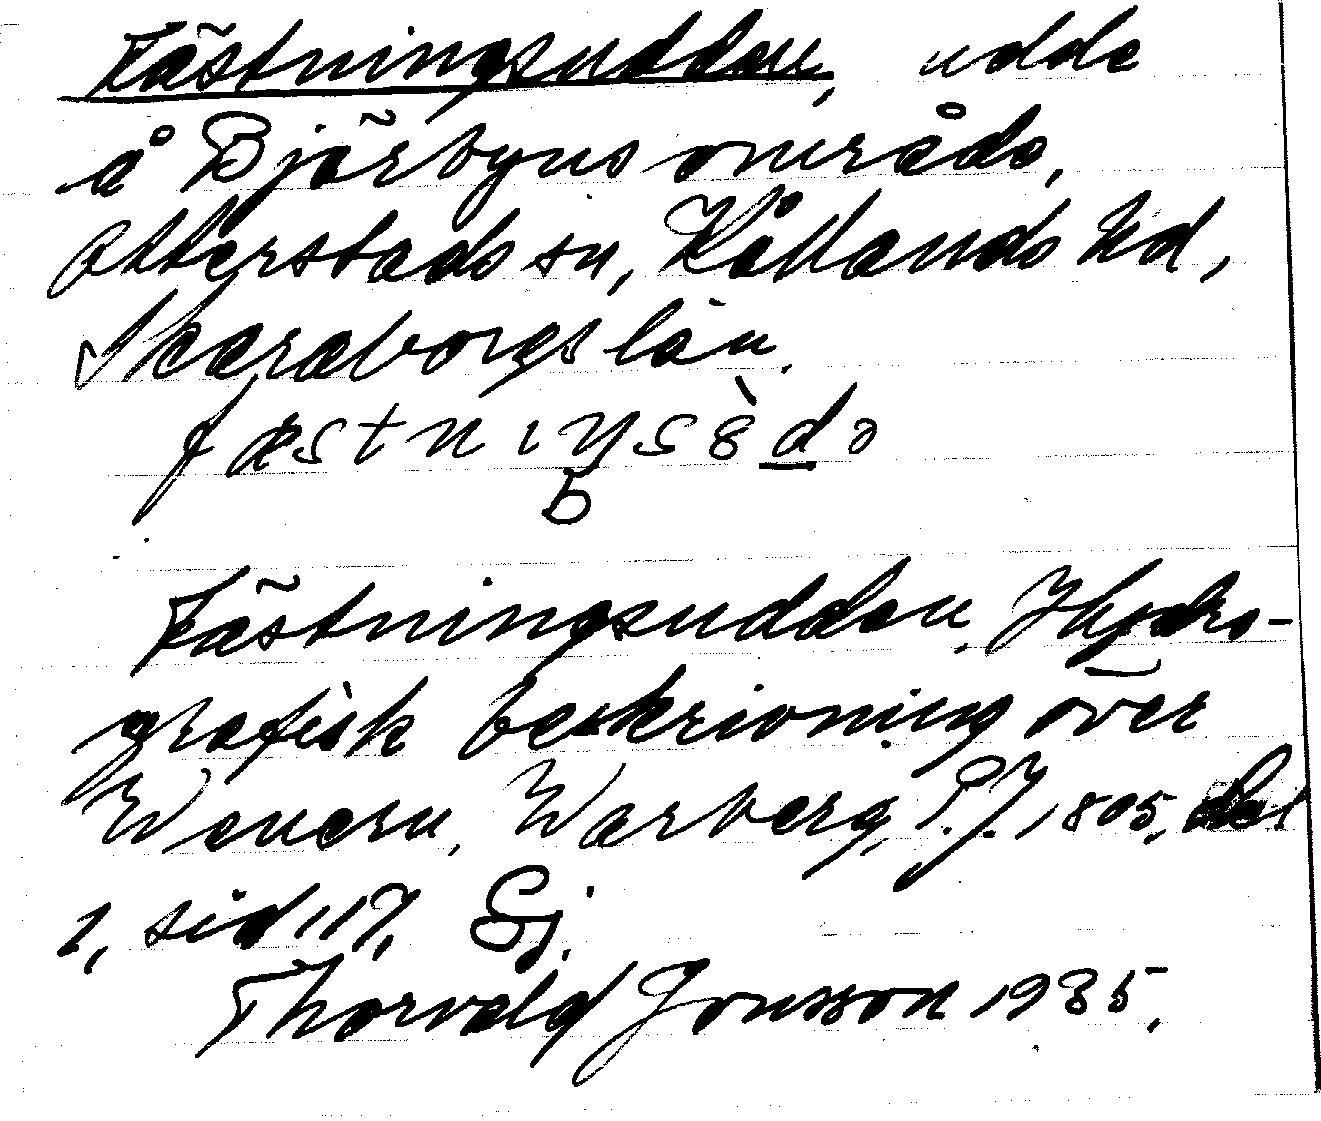 Fästningsudden, udde
å Björbyns område,
Otterstads sn, Kållands hd,
Skaraborgs län.
Fästningsudden. Hydro-
grafisk beskrivning över
Wenern, Warberg, P.J, 1805, del
1, sid 117, Ej.
Thorvald Jonsson 1935.